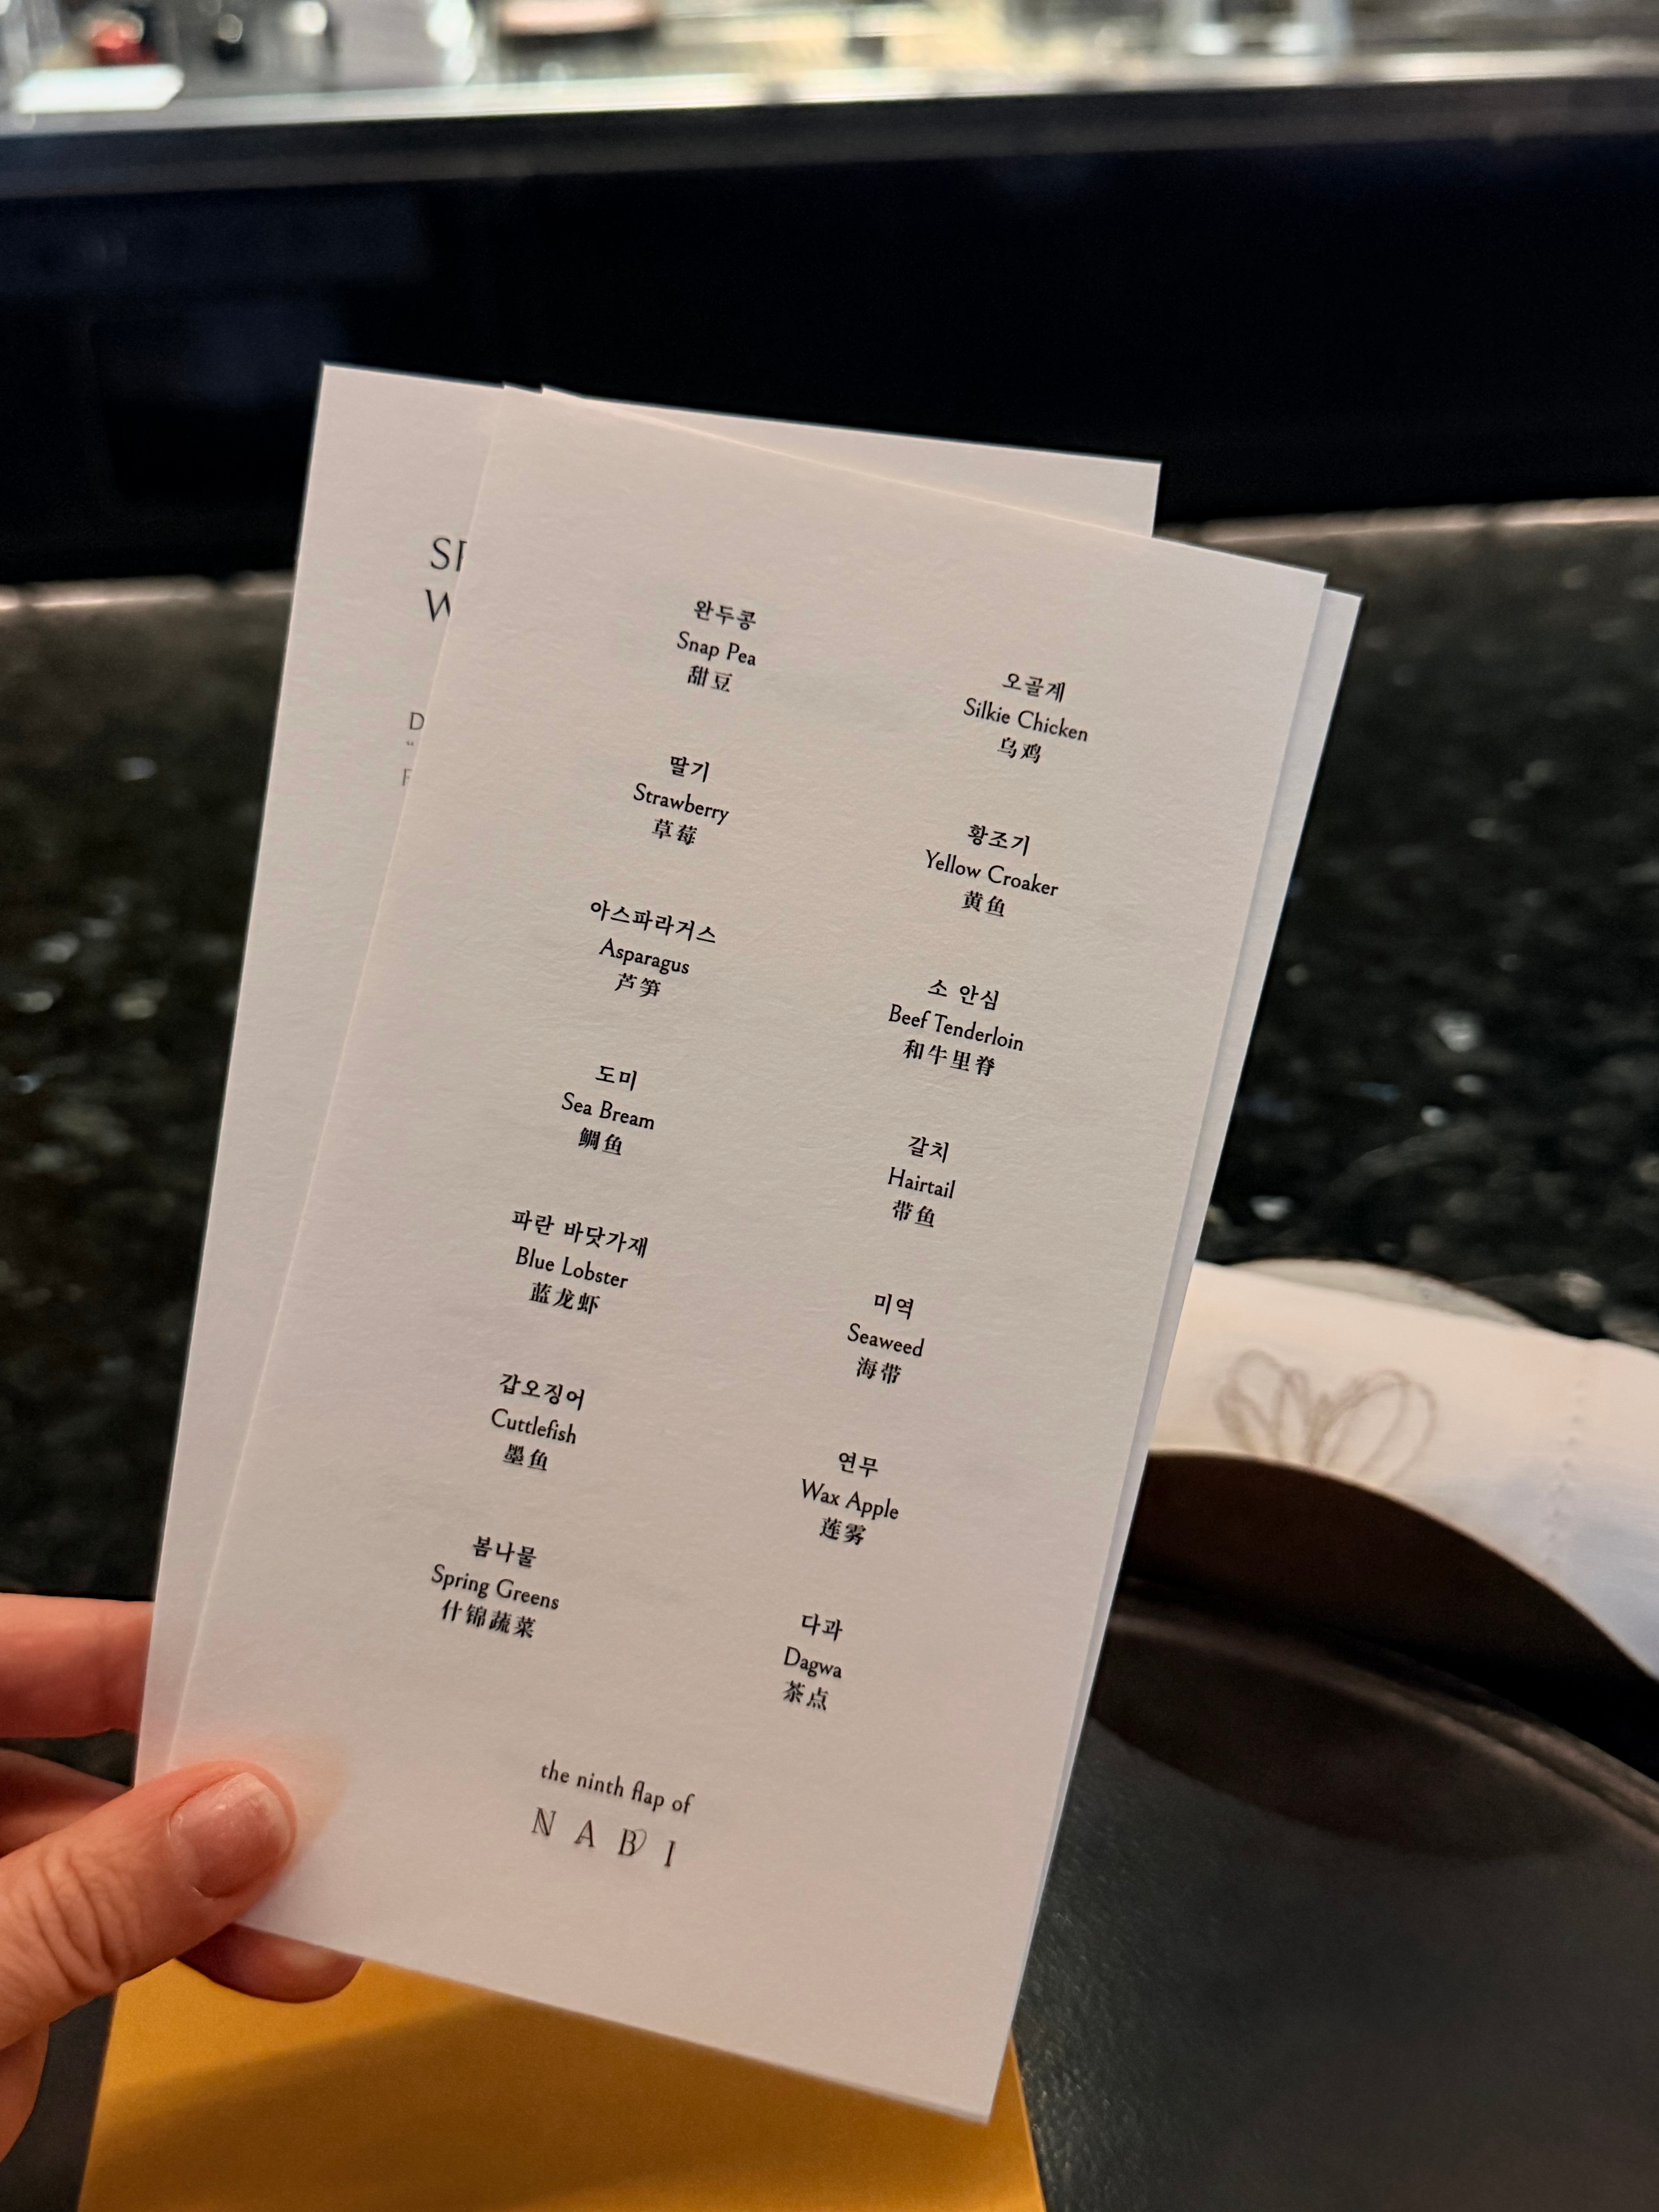 완두콩
Snap Pea
甜豆
딸기
Strawberry
草莓
아스파라거스
Asparagus
芦笋
도미
Sea Bream
鲷鱼
파란 바닷가재
Blue Lobster
蓝龙虾
갑오징어
Cuttlefish
墨鱼
봄나물
Spring Greens
什锦蔬菜
오골계
Silkie Chicken
乌鸡
황조기
Yellow Croaker
黄鱼
소 안심
Beef Tenderloin
和牛里脊
갈치
Hairtail
带鱼
미역
Seaweed
海带
연무
Wax Apple
莲雾
다과
Dagwa
茶点
the ninth flap of
NABI